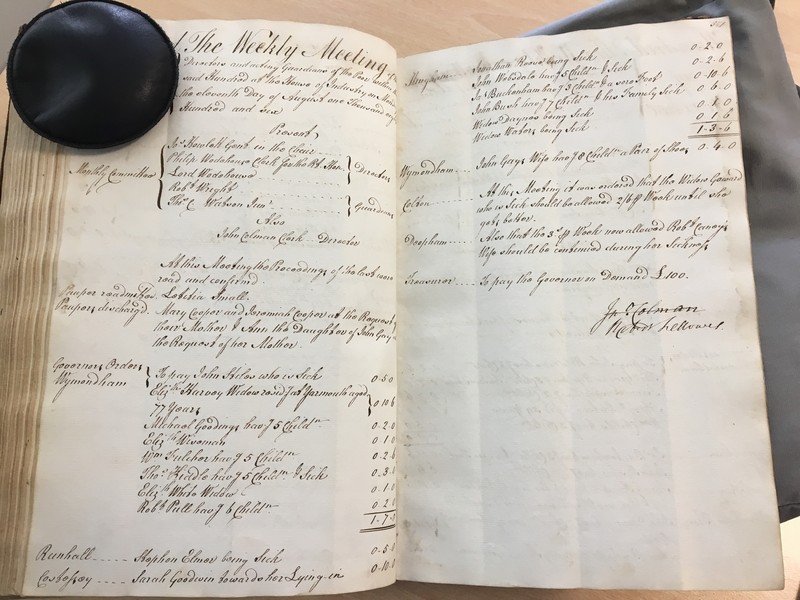 The Weekly Meeting of
Directors and acting Guardians of the Poor within
said Hundred at the House of Industry on Monday
the eleventh Day of August one Thousand
Hundred and six
Present
Monthly Committee
Gent. in the Chair
Philip Wodehouse Clerk for the Rt. Hon.
Lord Wodehouse
Directors
Robt. Wright
Thos. C. Watson Junr.
Guardians
Also
John Colman Clerk Director
At this Meeting the Proceedings of the last were
read and confirmed
Pauper readmitted. Letitia Small.
Paupers discharg'd. Mary Cooper and Jeremiah Cooper at the Request
their Mother & Ann the Daughter of John Gay
the Request of her Mother.
Governors Orders
Wymondham
To pay John Stelos who is Sick 0-5-0
Eliz.th Harvey Widow resid.g at Yarmouth aged
77 Years 0-10-6
Michael Gooding hav.g 5 Child.n 0-2-0
Eliz.th Wiseman 0-1-0
Wm. Fulcher hav.g 5 Child.n 0-2-6
Thos. Kiddle hav.g 5 Child.n & Sick 0-3-0
Eliz.th White Widow 0-1-0
Robt. Pull hav.g 6 Child.n 0-2-0
1-7-
Runhall Stephen Elmer being Sick 0-5-0
Costessey Sarah Goodwin towards her Lying-in 0-10-0
Jonathan Reeve being Sick 0-2-0
John hav.g 5 Child.n & Sick 0-2-6
Jas. Buckenham hav.g 3 Child.n & a sore Foot 0-10-6
John Bush hav.g 7 Child.n & his Family Sick 0-6-0
Widow Daynes being Sick
Widow Waters being Sick 0-1-6
1-3-6
Wymondham John Gay's Wife hav.g 8 Child.n a Pair of Shoes 0-4-0
Colton At this Meeting it was ordered that the Widow
who is Sick should be allowed 2/6 p Week until she
gets better.
Deopham Also that the 3s. p Week now allowed Robt. Canay's
Wife should be continued during her Sickness
Treasurer To pay the Governor on Demand £100.
Jno. Colman
Fellowes